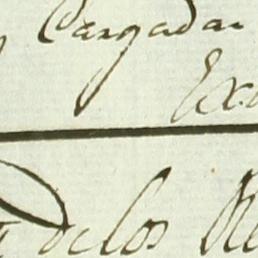 Cargadas
Ex
de los Re